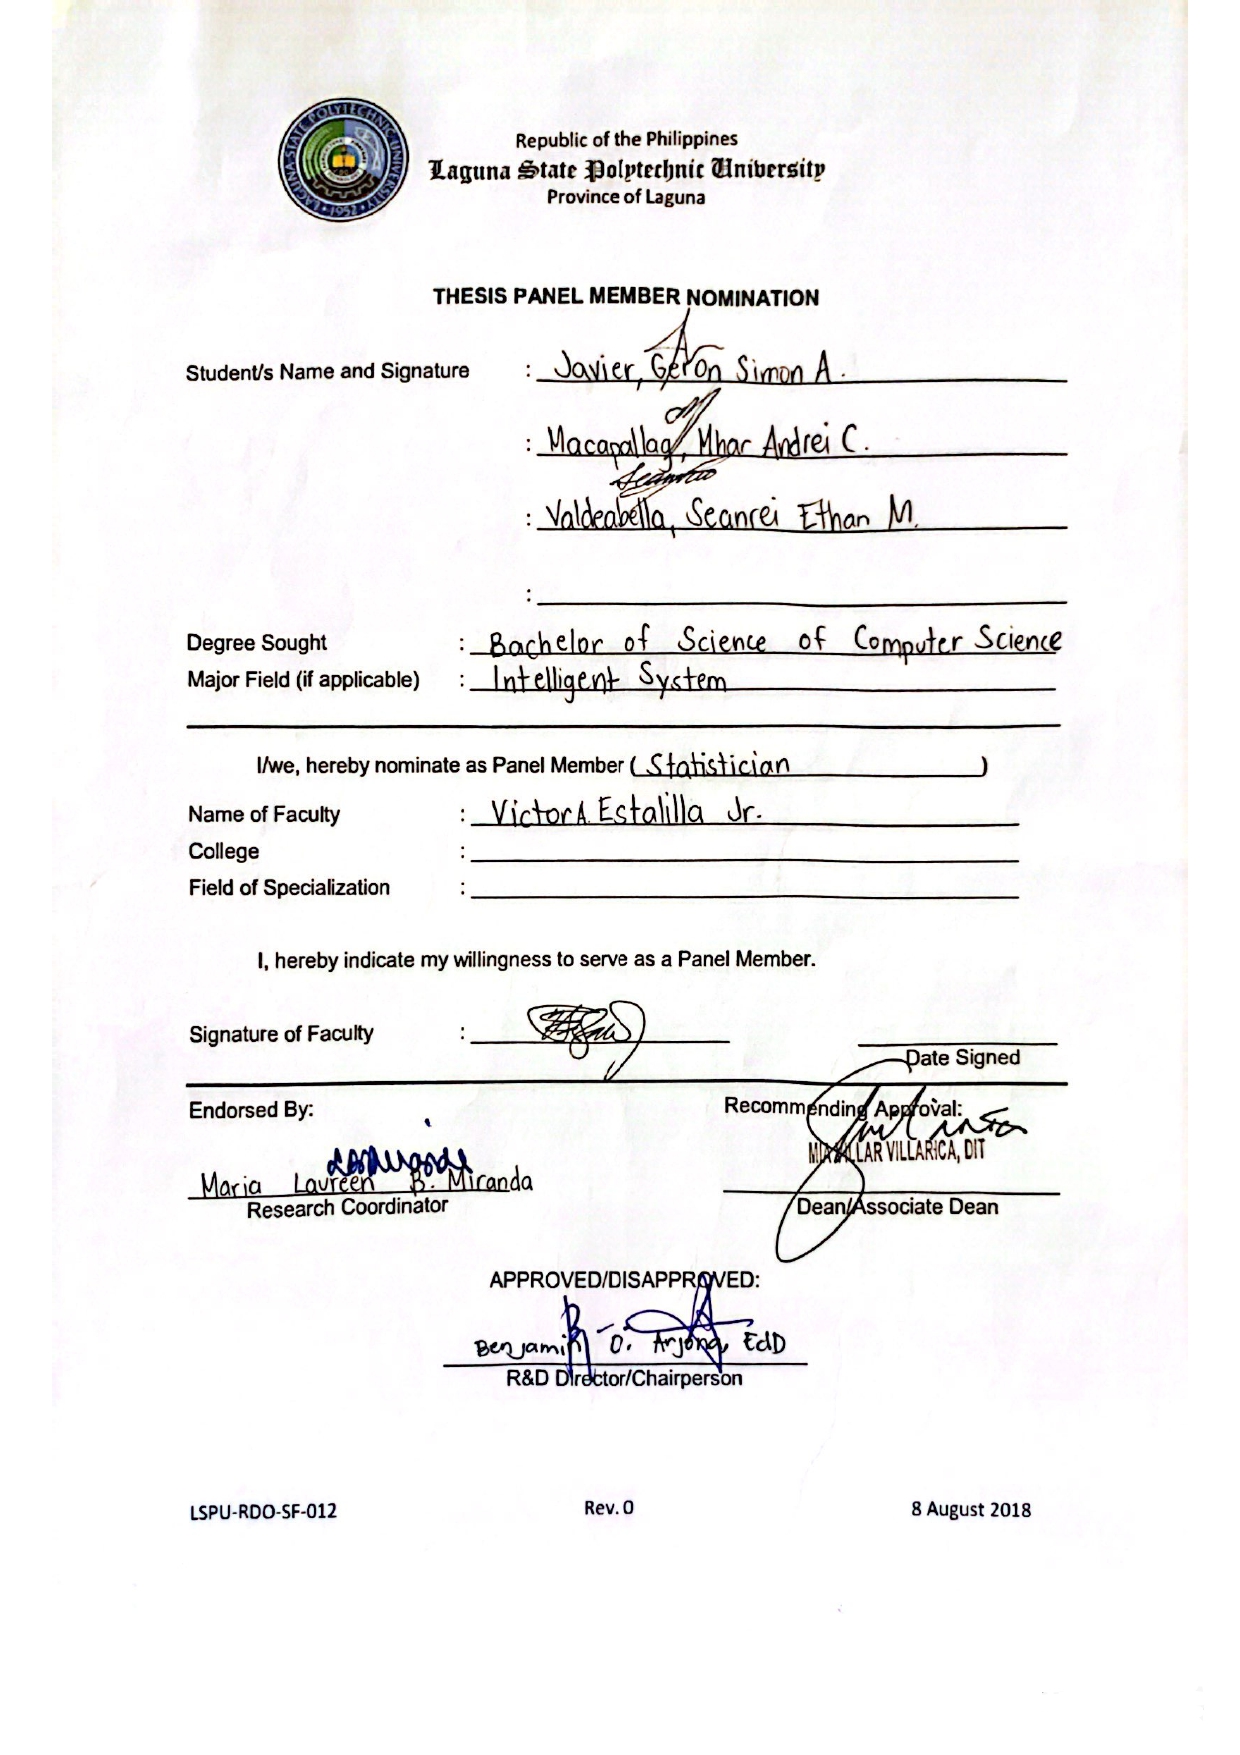 LAGUNA STATE POLYTECHNIC UNIVERSITY
1952
Republic of the Philippines
Laguna State Polytechnic University
Province of Laguna
THESIS PANEL MEMBER NOMINATION
Student/s Name and Signature : Javier, Geron Simon A.
: Macapallag, Mhar Andrei C.
: Valdeabella, Seanrei Ethan M.
:
Degree Sought : Bachelor of Science of Computer Science
Major Field (if applicable) : Intelligent System
I/we, hereby nominate as Panel Member ( Statistician )
Name of Faculty : Victor A. Estalilla Jr.
College :
Field of Specialization :
I, hereby indicate my willingness to serve as a Panel Member.
Signature of Faculty :
Date Signed
Endorsed By: Recommending Approval:
VILLARICA, DIT
Maria Laureen B. Miranda
Research Coordinator Dean/Associate Dean
APPROVED/DISAPPROVED:
Benjamin O. Arjona, EdD
R&D Director/Chairperson
LSPU-RDO-SF-012 Rev. 0 8 August 2018